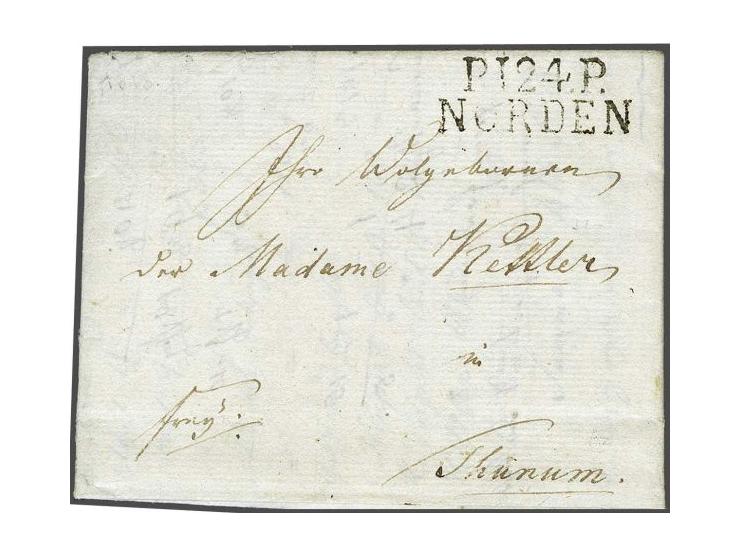 P124.P.
NORDEN
Ihro Wolgebornen
der Madame Kettler
in
frey:
Thunum.